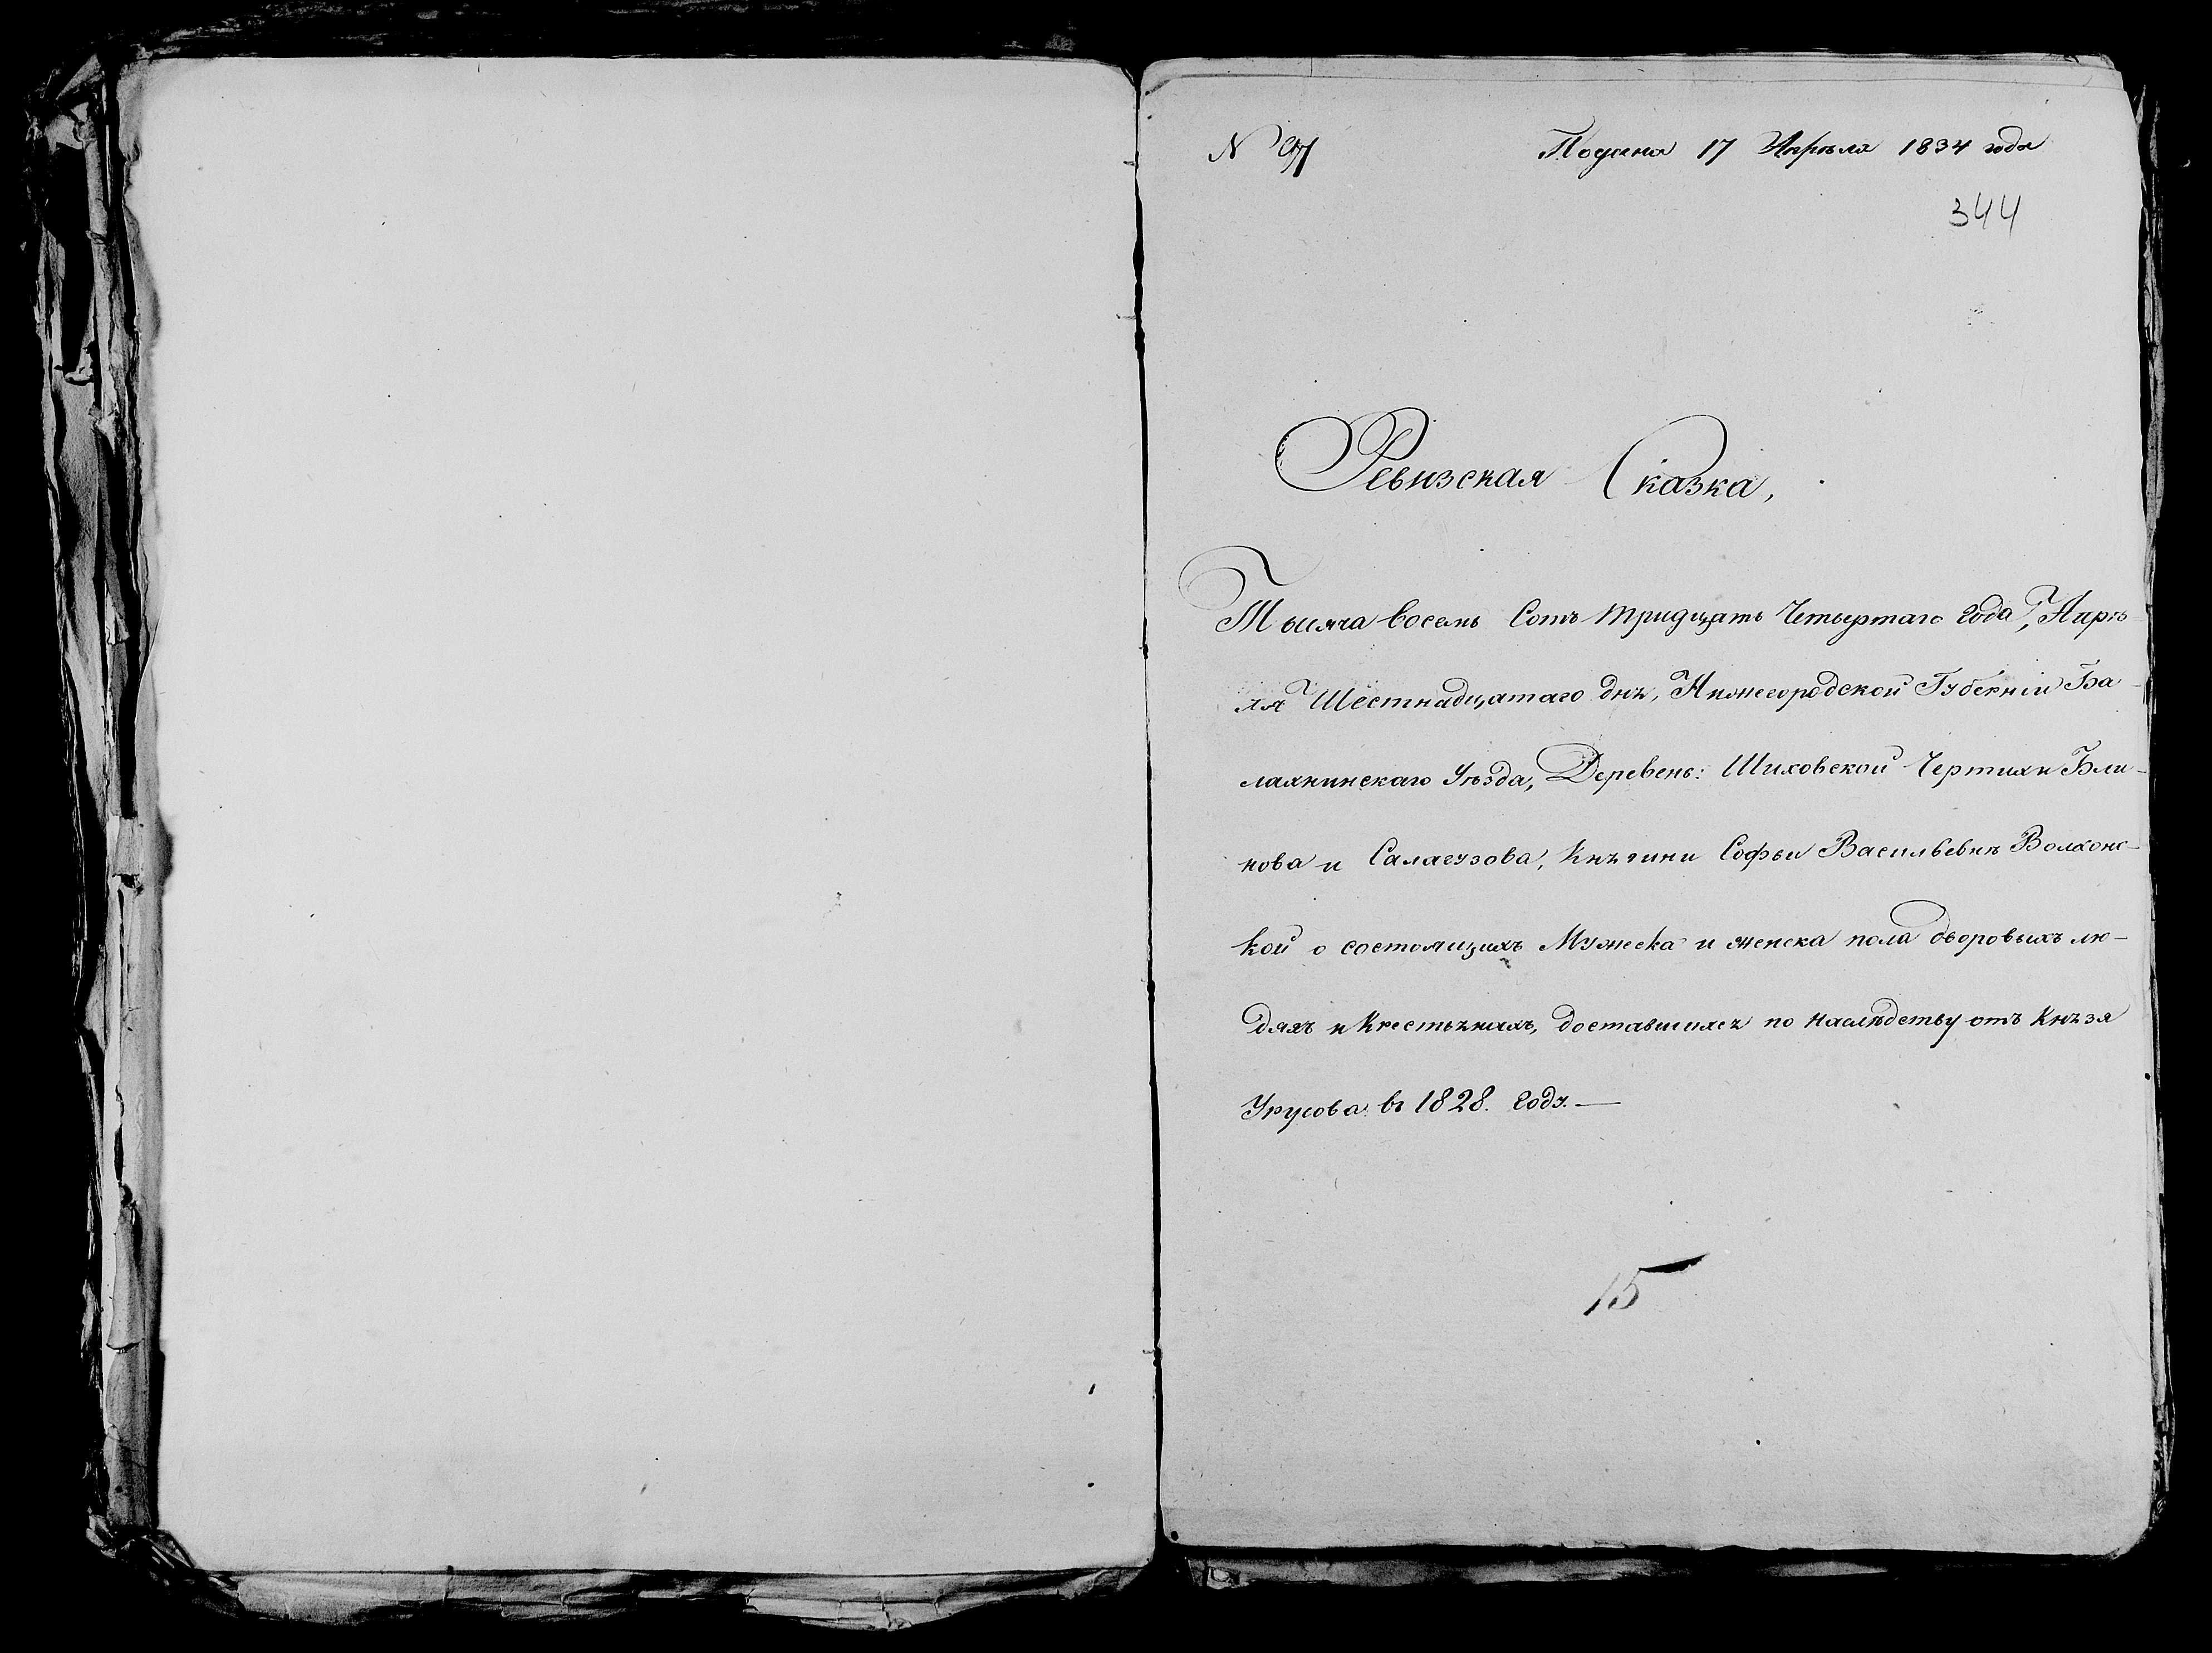 N 97 Подана 17 Апреля 1834 года
344
Ревизская Сказка,
Тысяча восемь Сотъ тридцать Четвертаго года, Апре-
ля Шестнадцатаго дня, Нижегородской Губерніи Ба-
лахнинскаго Уезда, Деревень: Шиховской Чертихи Бли-
нова и Салагузова, Княгини Софьи Васильевне Волхонс-
кой о состоящихъ Мужеска и женска пола дворовыхъ лю-
дяхъ и Крестьянахъ, доставшихся по наследству отъ Князя
Урусова въ 1828. году.—
15